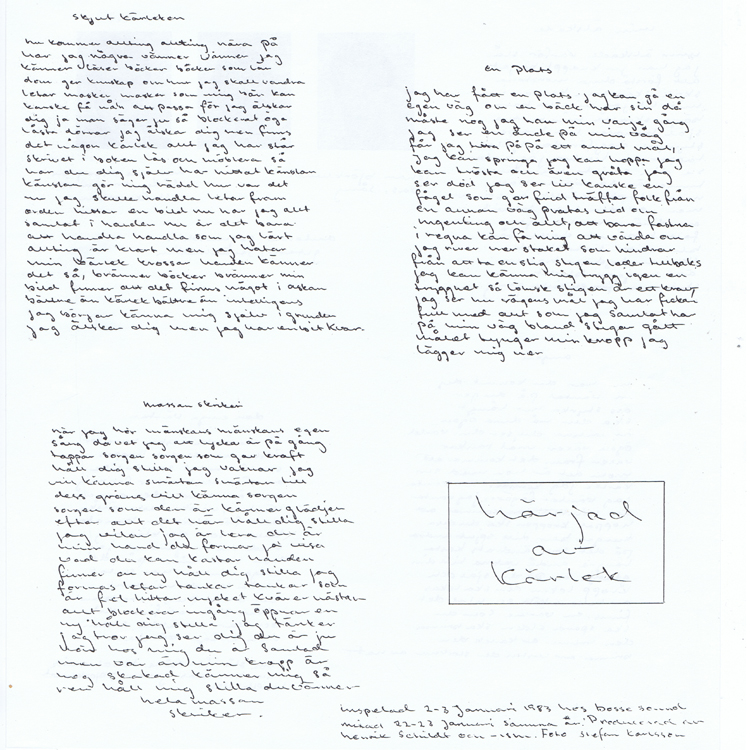 Skjut Kärleken
nu kommer allting allting nära på
har jag några vänner vänner jag
känner läser böcker böcker som lär
dom ger kunskap om hur jag skall vandra
letar masker masker som mig bär kan
kanske få nåt att passa för jag älskar
dig ja man säger ju så blockerat öga
låsta dörrar jag älskar dig men finns
det någon kärlek allt jag har står
skrivet i boken läs och möblera så
har du dig själv har hittat känslan
känslan gör mig rädd hur var det
nu jag skulle handla letar fram
orden hittar en bild nu har jag allt
samlat i handen nu är det bara
att handla handla som jag lärt
allting är klart men jag hatar
min kärlek krossar handen känner
det så, bränner böcker bränner min
bild finner att det finns något i askan
bättre än kärlek bättre än intelligens
jag börjar känna mig själv i grunden
jag älskar dig men jag har en bit kvar.
en plats
jag har fått en plats jag kan gå en
egen väg om en bäck har sin då
måste nog jag ha min varje gång
jag ser en ände på min väg
får jag hitta på på ett annat mål,
jag kan springa jag kan hoppa jag
kan hosta och även gråta jag
ser död jag ser liv kanske en
fågel som gör ljud träffar folk från
en annan väg pratas vid om
ingenting och allt, att bara fastna
i regna kan få mig att vända om
jag river ner staket som hindrar
från att ta en stig stigen leder tillbaks
jag kan känna mig trygg igen en
trygghet så lömsk stigen är ett krav,
jag ser nu vägens mål jag har fickan
full med allt som jag samlat har
på min väg bland stigar gått
målet tynger min kropp jag
lägger mig ner
massan skriker
när jag hör mänskans mänskans egen
sång då vet jag att lycka är på gång
tappar sorgen sorgen som gav kraft
håll dig stilla jag vaknar jag
vill känna smärtan smärtan till
dess gräns vill känna sorgen
sorgen som den är känner glädjen
efter allt det här håll dig stilla
jag vilar jag är lera du är
min hand du formar på vissa
vard du kan kastar handen
finner en ny håll dig stilla jag
formas letar tankar tankar som
är fel hittar mycket kväver nästan
allt blockerar ingång öppnar en
ny håll dig stilla jag tänker
jag tror jag ser dig du är ju
här hos mig du är samlad
men var än min kropp är
nog skakad känner mig så
ren håll mig stilla du värmer
hela massan
skriker.
härjad
av
Kärlek
inspelad 2-3 Januari 1983 hos bosse sound
mixad 22-23 januari samma år. Producerad av
henrik Schildt och -ism. Foto Stefan Karlsson